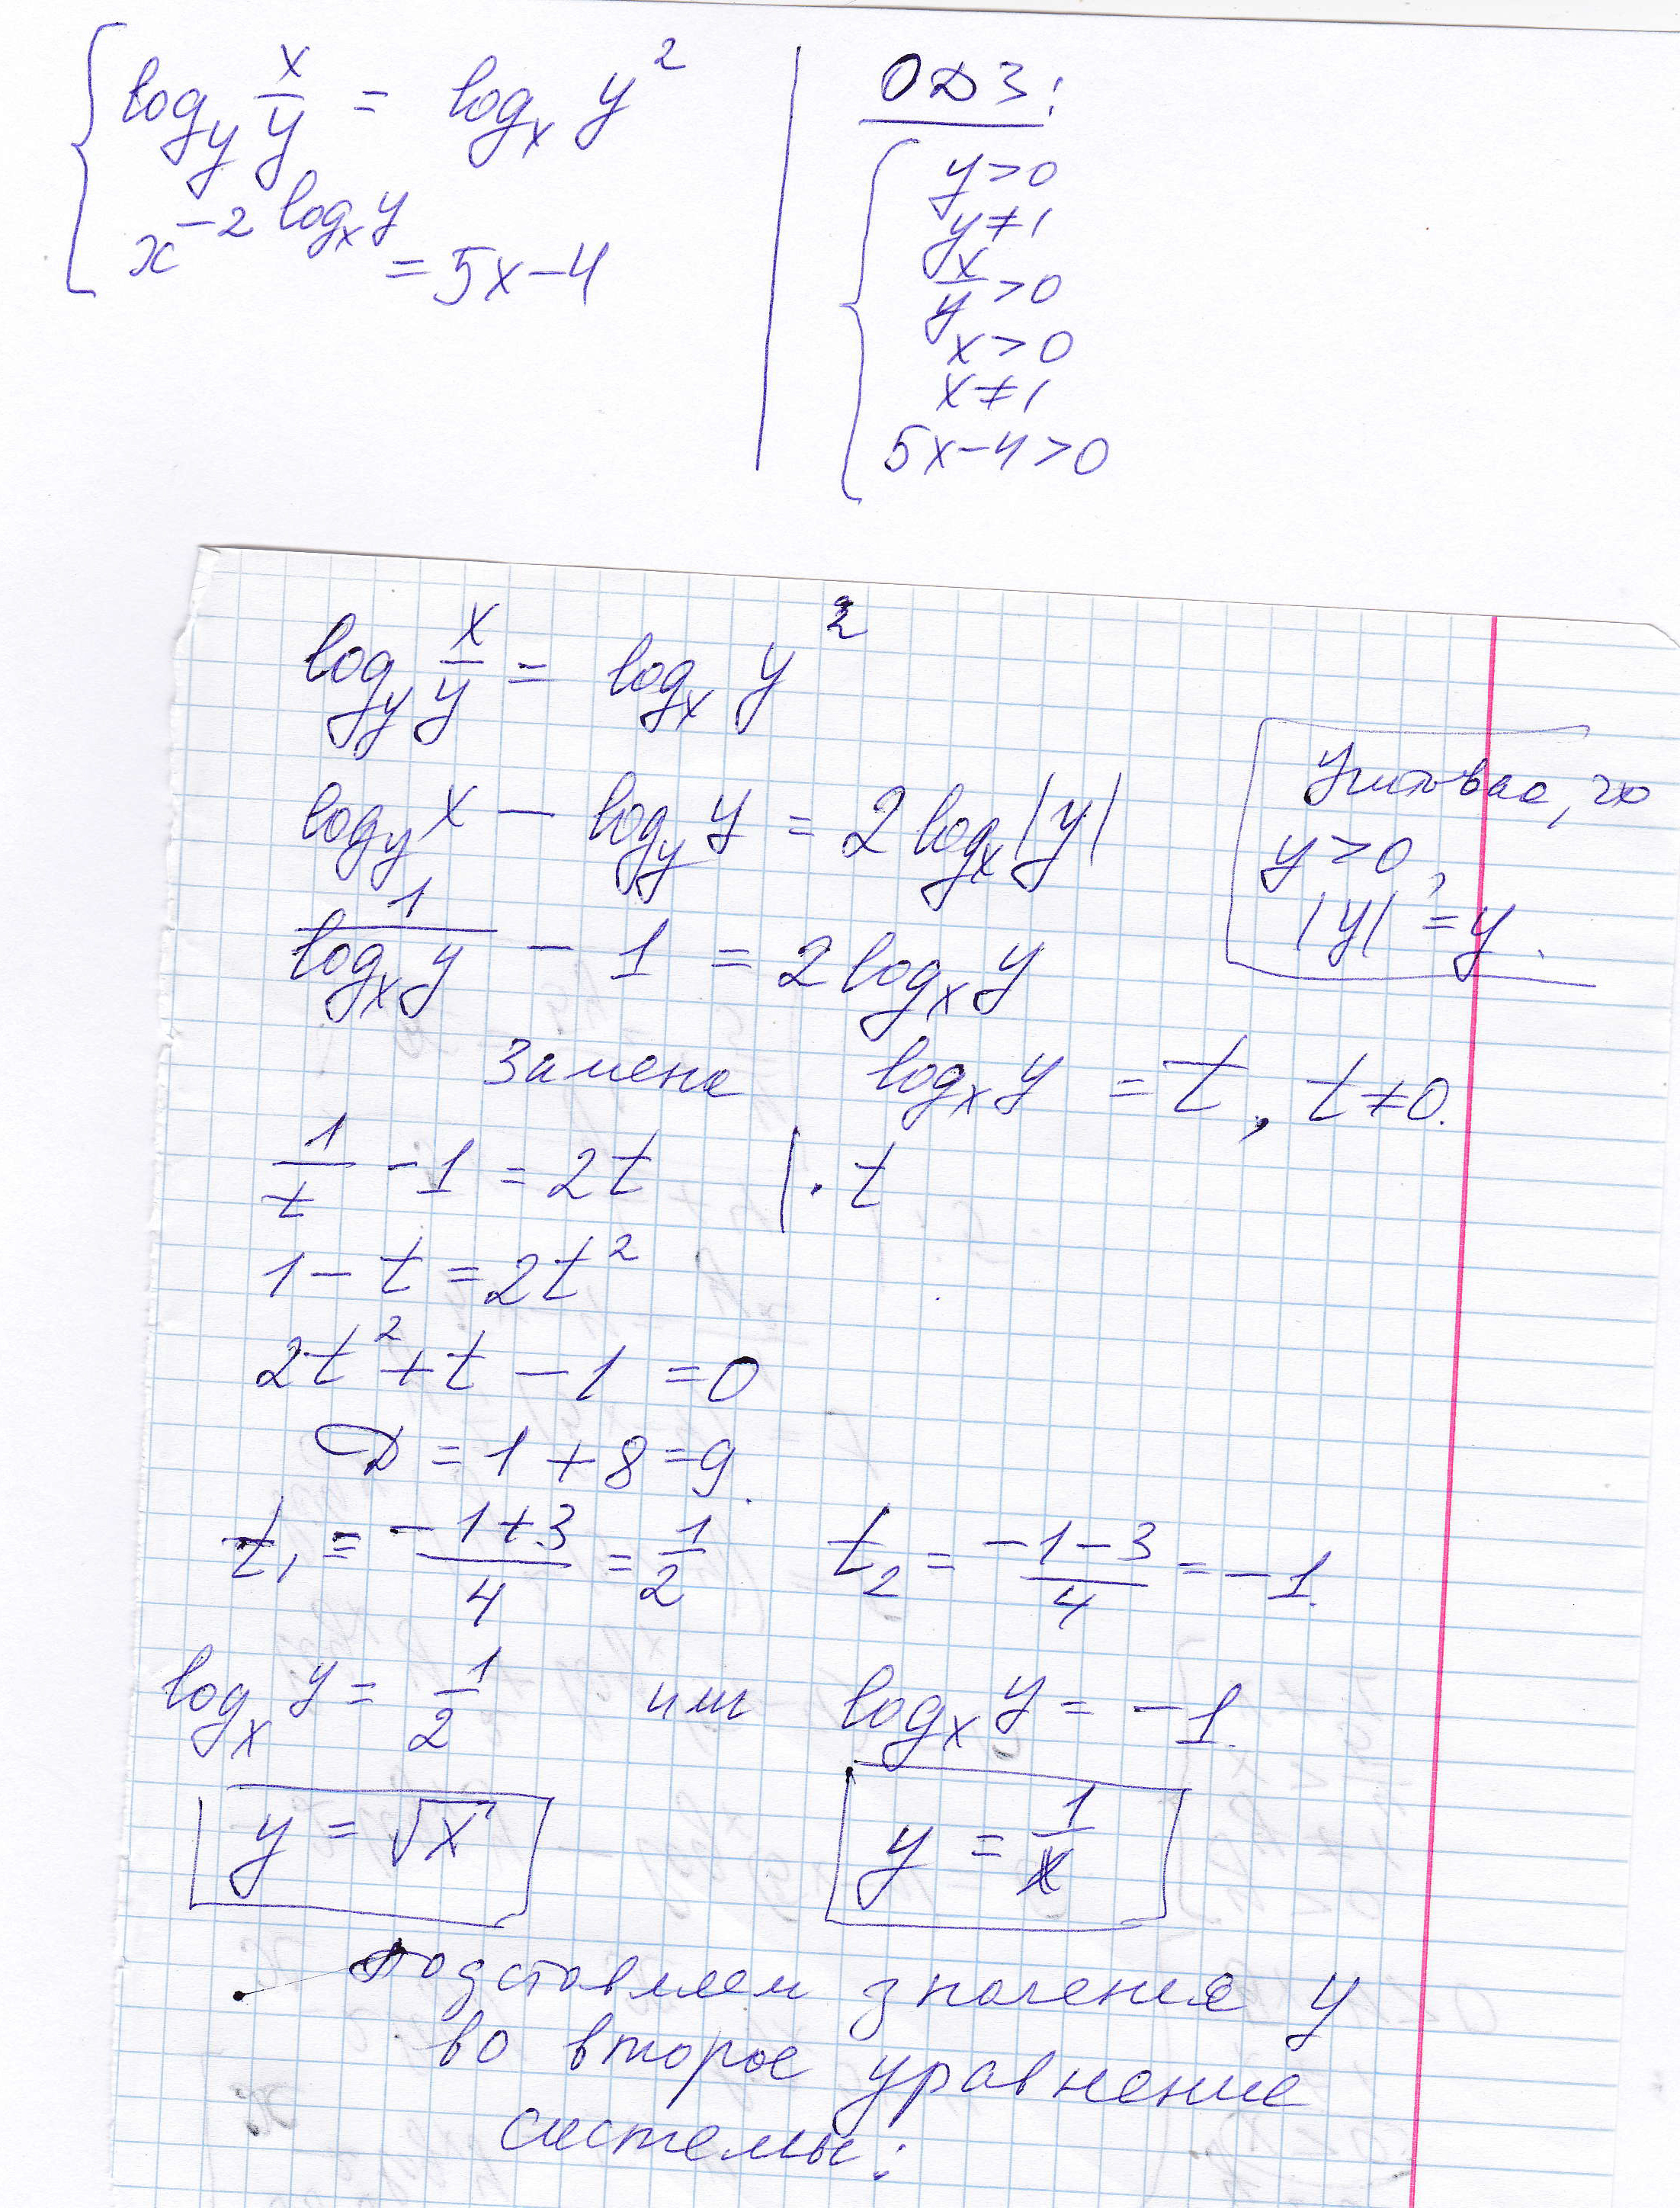 log_y x/y = log_x y²
x^(-2 log_x y) = 5x-4
ОДЗ:
y>0
y≠1
x/y>0
x>0
x≠1
5x-4>0
log_y x/y = log_x y²
log_y x - log_y y = 2log_x |y|
1/(log_x y) - 1 = 2log_x y
y>0,
|y| = y.
Замена log_x y = t, t≠0.
1/t - 1 = 2t | · t
1 - t = 2t²
2t² + t - 1 = 0
D = 1 + 8 = 9.
t₁ = (-1+3)/4 = 1/2 t₂ = (-1-3)/4 = -1.
log_x y = 1/2 или log_x y = -1.
y = √x y = 1/x
Подставляем значения y
во второе уравнение
системы: